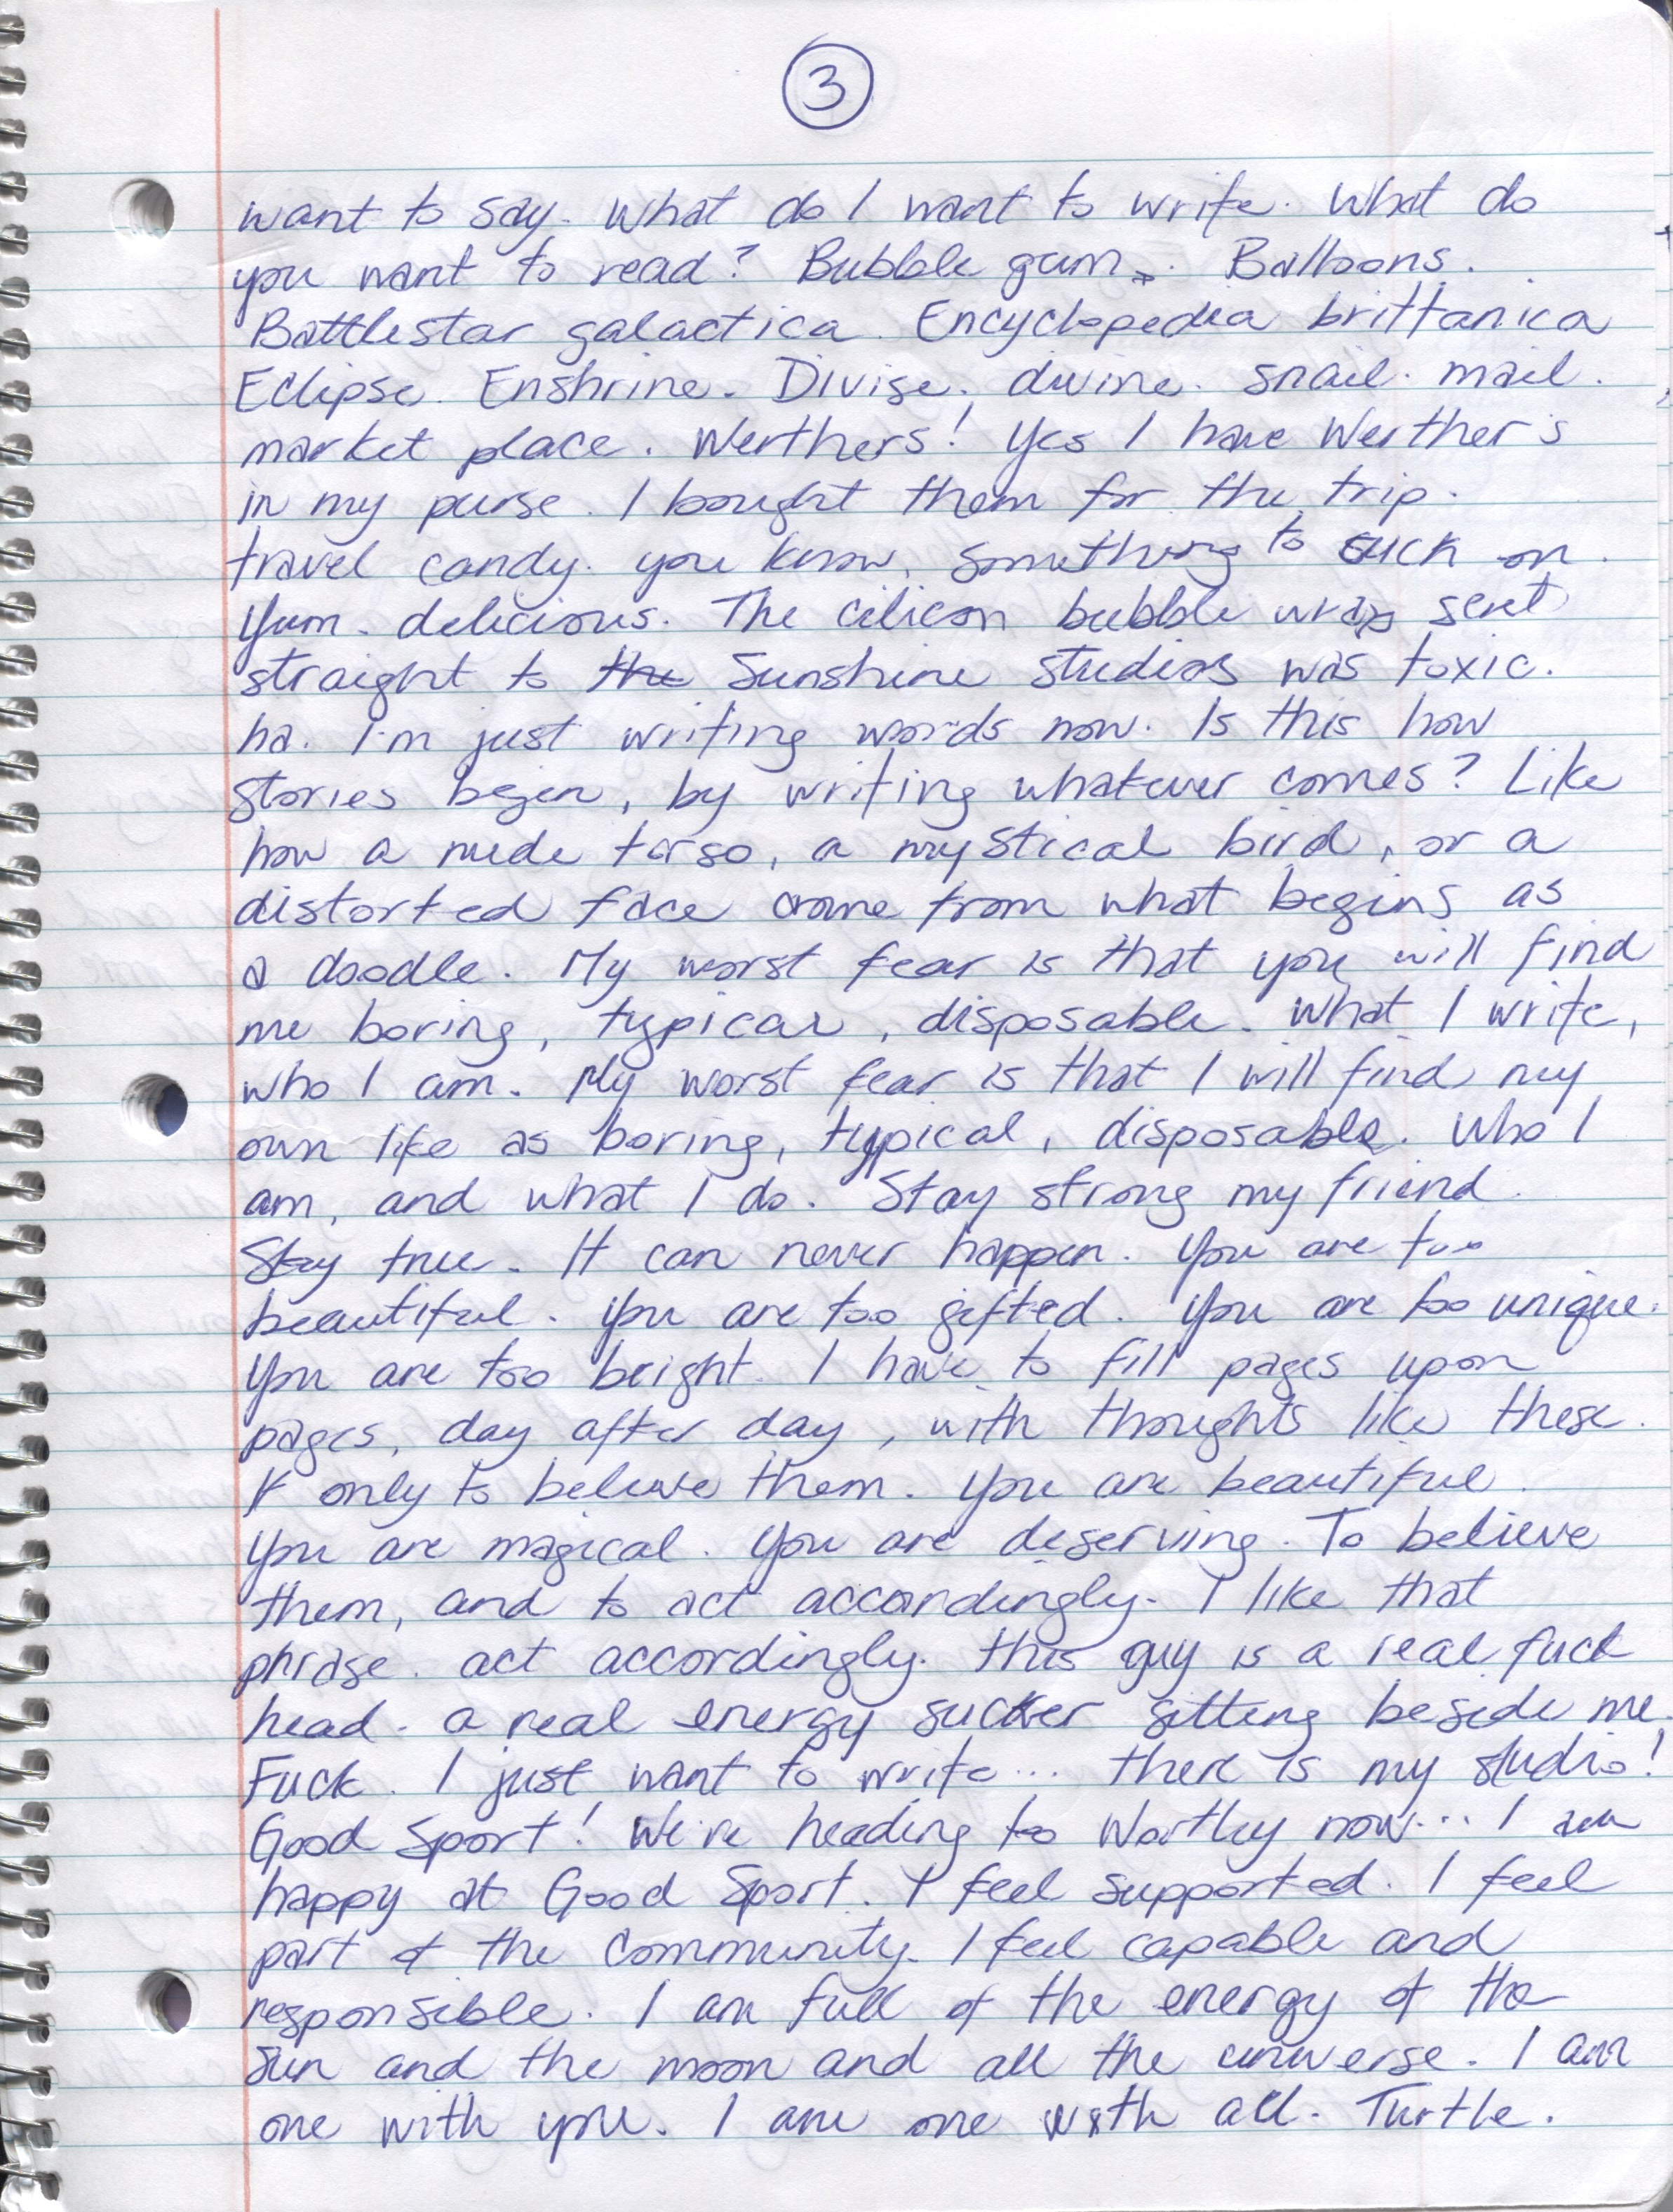 3
want to say. What do I want to write. What do
you want to read? Bubble gum. Balloons.
Battlestar galactica. Encyclopedia brittanica
Eclipse. Enshrine. Divise. divine. snail. mail.
market place. Werthers! Yes I have Werther's
in my purse. I bought them for the trip.
travel candy. you know, something to suck on.
Yum. delicious. The cilicon bubble wrap sent
straight to the Sunshine studios was toxic.
ha. I'm just writing words now. Is this how
stories begin, by writing whatever comes? Like
how a nude torso, a mystical bird, or a
distorted face come from what begins as
a doodle. My worst fear is that you will find
me boring, typical, disposable. What I write,
who I am. My worst fear is that I will find my
own life as boring, typical, disposable. Who I
am, and what I do. Stay strong my friend.
Stay true. It can never happen. You are too
beautiful. You are too gifted. You are too unique.
You are too bright. I have to fill pages upon
pages, day after day, with thoughts like these.
If only to believe them. You are beautiful.
You are magical. You are deserving. To believe
them, and to act accordingly. I like that
phrase. act accordingly. this guy is a real fuck
head. a real energy sucker sitting beside me.
Fuck. I just want to write... there is my studio!
Good Sport! We're heading to Wortley now... I am
happy at Good Sport. I feel supported. I feel
part of the community. I feel capable and
responsible. I am full of the energy of the
sun and the moon and all the universe. I am
one with you. I am one with all. Turtle.